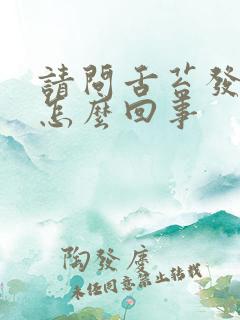 請問舌苔發
怎麼回事
陶發虔
未经同意禁止转载